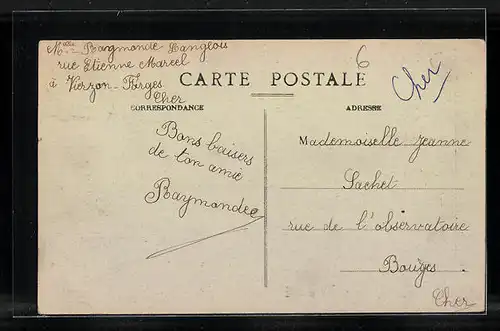 Melle Raymonde Langlois
rue Etienne Marcel
à Vierzon-Forges
Cher
6
Cher
CARTE POSTALE
CORRESPONDANCE
ADRESSE
Bons baisers
de ton amie
Raymonde
Mademoiselle Jeanne
Sachet
rue de l'observatoire
Bouges
Cher